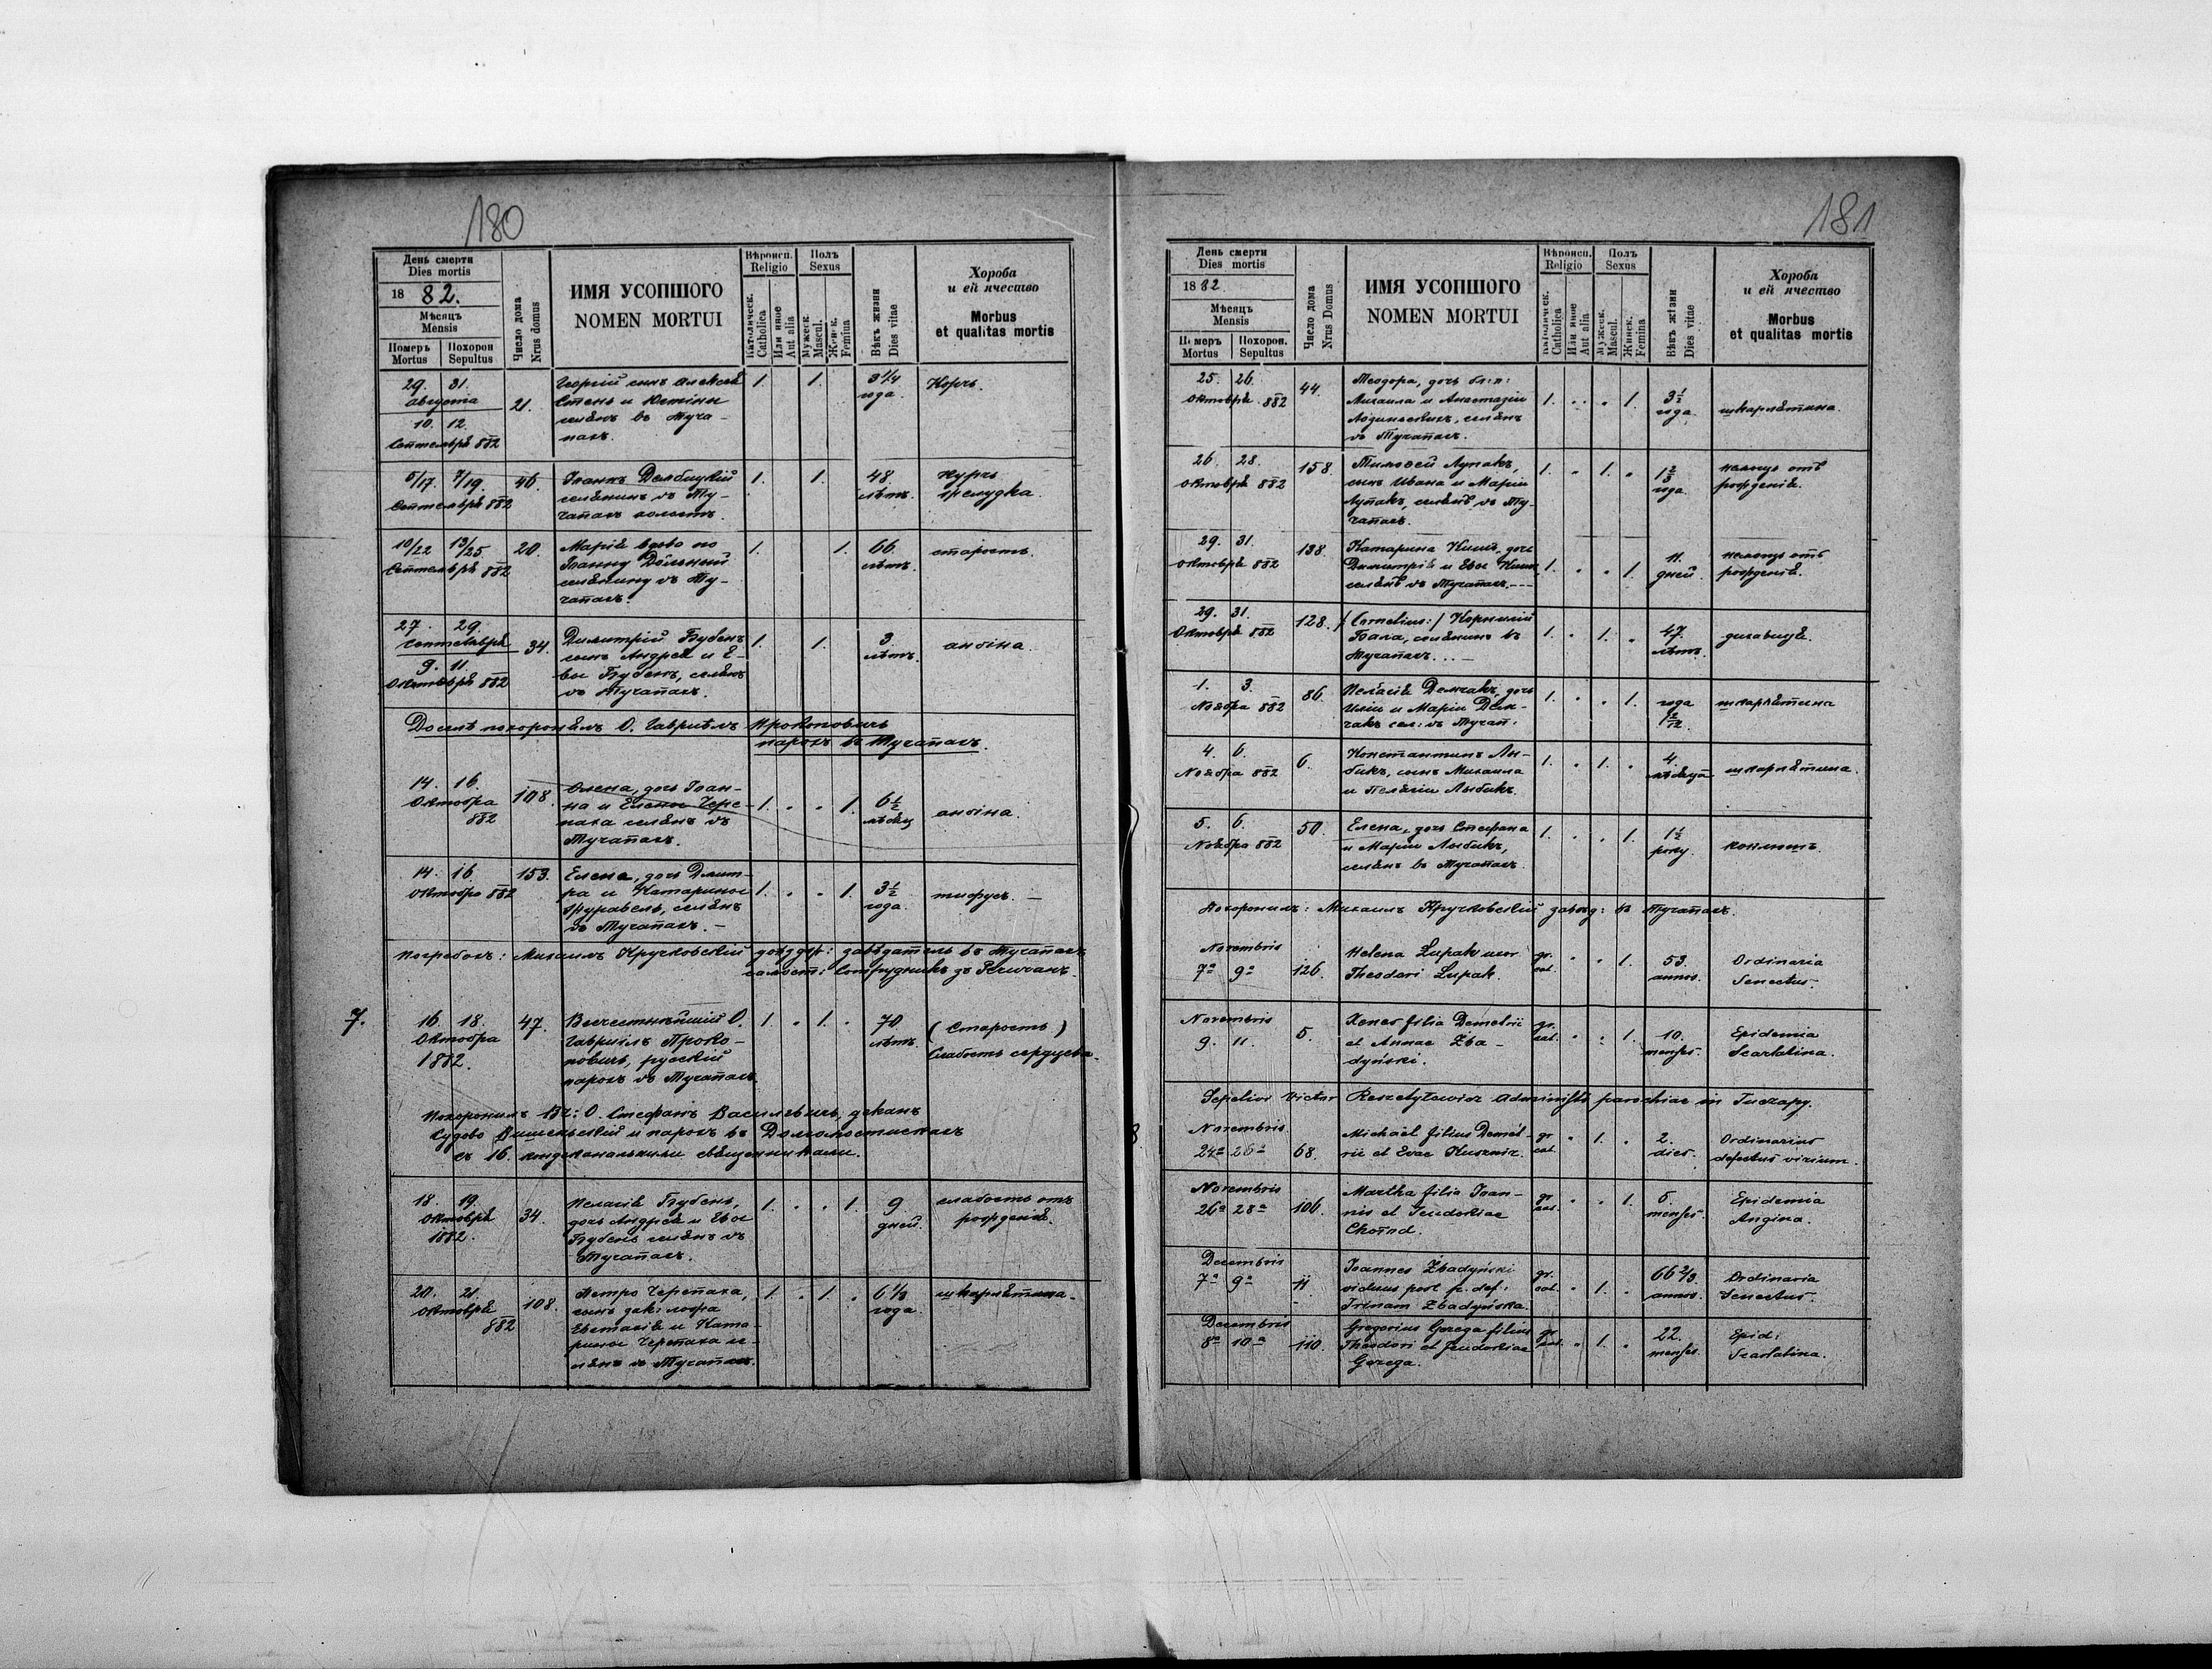 180
День смерти
Dies mortis
1882.
Мѣсяцъ
Mensis
Померъ
Mortus
Похорон
Sepultus
Число дома
Nrus domus
ИМЯ УСОПШОГО
NOMEN MORTUI
Вѣроисп.
Religio
Католическ.
Catholica
Или иное
Aut alia
Полъ
Sexus
Мужеск.
Mascul.
Женск.
Femina
Вѣкъ жизни
Dies vitae
Хороба
и ей ячество
Morbus
et qualitas mortis
29. 31.
Августа
10. 12.
Септемврѣ 882
21.
Георгій сынъ Алексѣя
Стень и Юстины
селянъ въ Туча-
пахъ.
1. 1.
3 1/4
года.
Корчъ.
5/17. 7/19.
Септемврѣ 882
46.
Іоаннъ Дембицкій
селянинъ въ Ту-
чапахъ
1. 1.
48.
лѣтъ.
Курчъ
желудка.
10/22 13/25
Септемврѣ 882
20.
Марія вдова по
Іоанну
селянину въ Ту-
чапахъ.
1. 1.
66.
лѣтъ.
старость.
27. 29.
Септемврѣ
9. 11.
Октоврѣ 882
34.
Димитрій Бубенъ
сынъ Андрея и Е-
вы Бубенъ, селянъ
въ Тучапахъ.
1. 1.
3.
лѣтъ.
ангіна.
Доселѣ похоронялъ О. Гавріилъ Прокоповичъ
парохъ въ Тучапахъ.
14. 16.
Октобра
882
108.
Олена, дочь Іоан-
на и Елены Чере-
паха селянъ въ
Тучапахъ.
1. 1.
6 1/2
мѣсяц
ангіна.
14. 16.
Октобра 882
153.
Елена, дочь Дмит-
ра и Катарины
Журавель, селянъ
въ Тучапахъ. -
1. 1.
3 1/2
года.
тифусъ. -
Погребалъ: Михаилъ Кручковскій завѣдатель въ Тучапахъ
Сотрудникъ
7.
16. 18.
Октобра
1882.
47.
Всечестнѣйшій О.
Гавріилъ Проко-
повичъ, русскій
парохъ въ Тучапахъ.
1. 1.
70
лѣтъ.
(Старость)
Слабость сердцева.
Похоронилъ Вч: О. Стефанъ Василевичъ, деканъ
Судово Вишеньскій и парохъ въ Долгомостискахъ
съ 16. кондеканальными священниками.
18. 19.
Октоврѣ
1882.
34.
Пелагія Бубенъ,
дочь Андрея и Евы
Бубенъ селянъ въ
Тучапахъ.
1. 1.
9
дней.
слабость отъ
рожденія.
20. 21.
Октоврѣ
882
108.
Петро Черепаха,
сынъ
Евстахія и Ката-
рины Черепаха се-
лянъ въ Тучапахъ.
1. 1.
6 1/3
года.
шкарлятина.
181
День смерти
Dies mortis
1882
Мѣсяцъ
Mensis
Померъ
Mortus
Похорон.
Sepultus
Число дома
Nrus Domus
ИМЯ УСОПШОГО
NOMEN MORTUI
Вѣроисп.
Religio
Католическ.
Catholica
Или иное
Aut alia
Полъ
Sexus
Мужеск.
Mascul.
Женск.
Femina
Вѣкъ жізни
Dies vitae
Хороба
и ей ячество
Morbus
et qualitas mortis
25. 26.
Октоврѣ 882
44.
Теодора, дочь бл: п:
Михаила и Анастазіи
селянъ
въ Тучапахъ.
1. 1.
3 1/2
года.
шкарлятина.
26. 28.
Октоврѣ 882
158.
Тимофей Лупакъ,
сынъ Ивана и Маріи
Лупакъ, селянъ въ Ту-
чапахъ.
1. 1.
1 2/3
года.
немощь отъ
рожденія.
29. 31.
Октоврѣ 882
138.
Катарина Кишъ, дочь
Димитрія и Евы Кишъ,
селянъ въ Тучапахъ.---
1. 1.
11.
дней.
немощь отъ
рожденія.
29. 31.
Октоврѣ 882
128.
/Cornelius:/ Корнилій
Бала, селянинъ въ
Тучапахъ...-
1. 1.
47.
лѣтъ.
дихавица.
1. 3.
Ноября 882
86.
Пелагія Демчакъ, дочь
Иліи и Маріи Дем-
чакъ сел: въ Тучап:
1. 1.
года
шкарлятина
4. 6.
Ноября 882
6.
Константинъ Лы-
бикъ, сынъ Михаила
и Пелагіи Лыбикъ.
1. 1.
4.
мѣсяца
шкарлятина.
5. 6.
Ноября 882
50.
Елена, дочь Стефана
и Маріи Лыбикъ,
селянъ въ Тучапахъ.
1. 1.
1 1/2
року.
коклюшъ.
Похоронилъ: Михаилъ Кручковскій завѣд: въ Тучапахъ.
Novembris
7a 9a
126.
Helena Łupak uxor
Theodori Łupak.
gr. cat. 1.
53.
annos.
Ordinaria
Senectus.
Novembris
9. 11.
5.
Xenes filia Demetrii
et Annae Zba-
dyński.
gr. cat. 1.
10.
menses.
Epidemia
Scarlatina.
Sepelivi Victor Reszetyłowicz Administr. parochiae in Tuczapy.
Novembris
24a 26a
68.
Michaël filius Demet-
rii et Evae Kusznir.
gr. cat. 1.
2.
dies.
Ordinarius
defectus virium.
Novembris
26a 28a
106.
Martha filia Joan-
nis et Eudokiae
gr. cat. 1.
5.
menses.
Epidemia
Angina.
Decembris
7a 9a
11.
Joannes Zbadyński
viduus post p. def:
Irinam Zbadyńska.
gr. cat. 1.
66 2/3.
annos.
Ordinaria
Senectus.
Decembris
8a 10a
110.
Gregorius Gozega filius
Theodori et Eudokiae
Gozega.
gr. cat. 1.
22.
menses.
Epid:
Scarlatina.